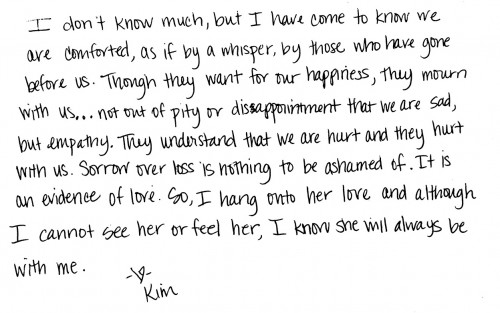 I don't know much, but I have come to know we
are comforted, as if by a whisper, by those who have gone
before us. Though they want for our happiness, they mourn
with us... not out of pity or dissappointment that we are sad,
but empathy. They understand that we are hurt and they hurt
with us. Sorrow over loss is nothing to be ashamed of. It is
an evidence of love. So, I hang onto her love and although
I cannot see her or feel her, I know she will always be
with me.
Kim